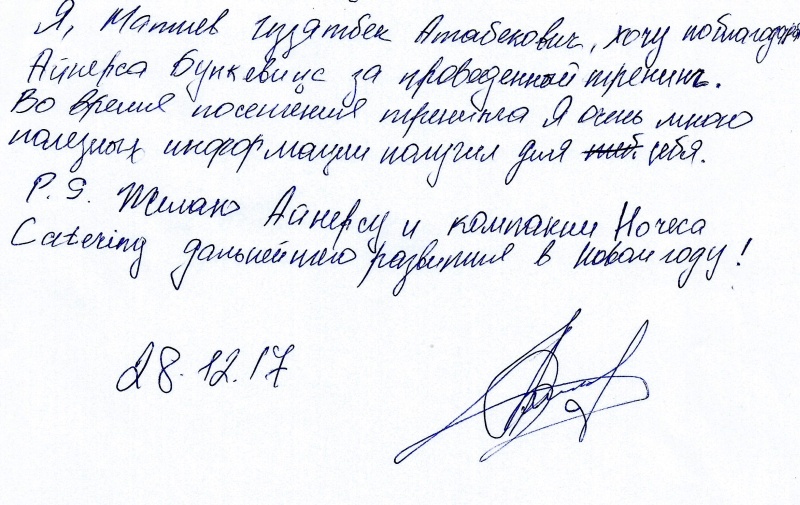 Я, Матиев Гузятбек Атабекович, хочу поблагодарить
Айнерса Бункевицс за проведенный тренинг.
Во время посещения тренинга Я очень много
полезных информации получил для себя.
P.S. Желаю Айнерсу и компании Horeca
Catering дальнейшего развития в новом году!
28.12.17